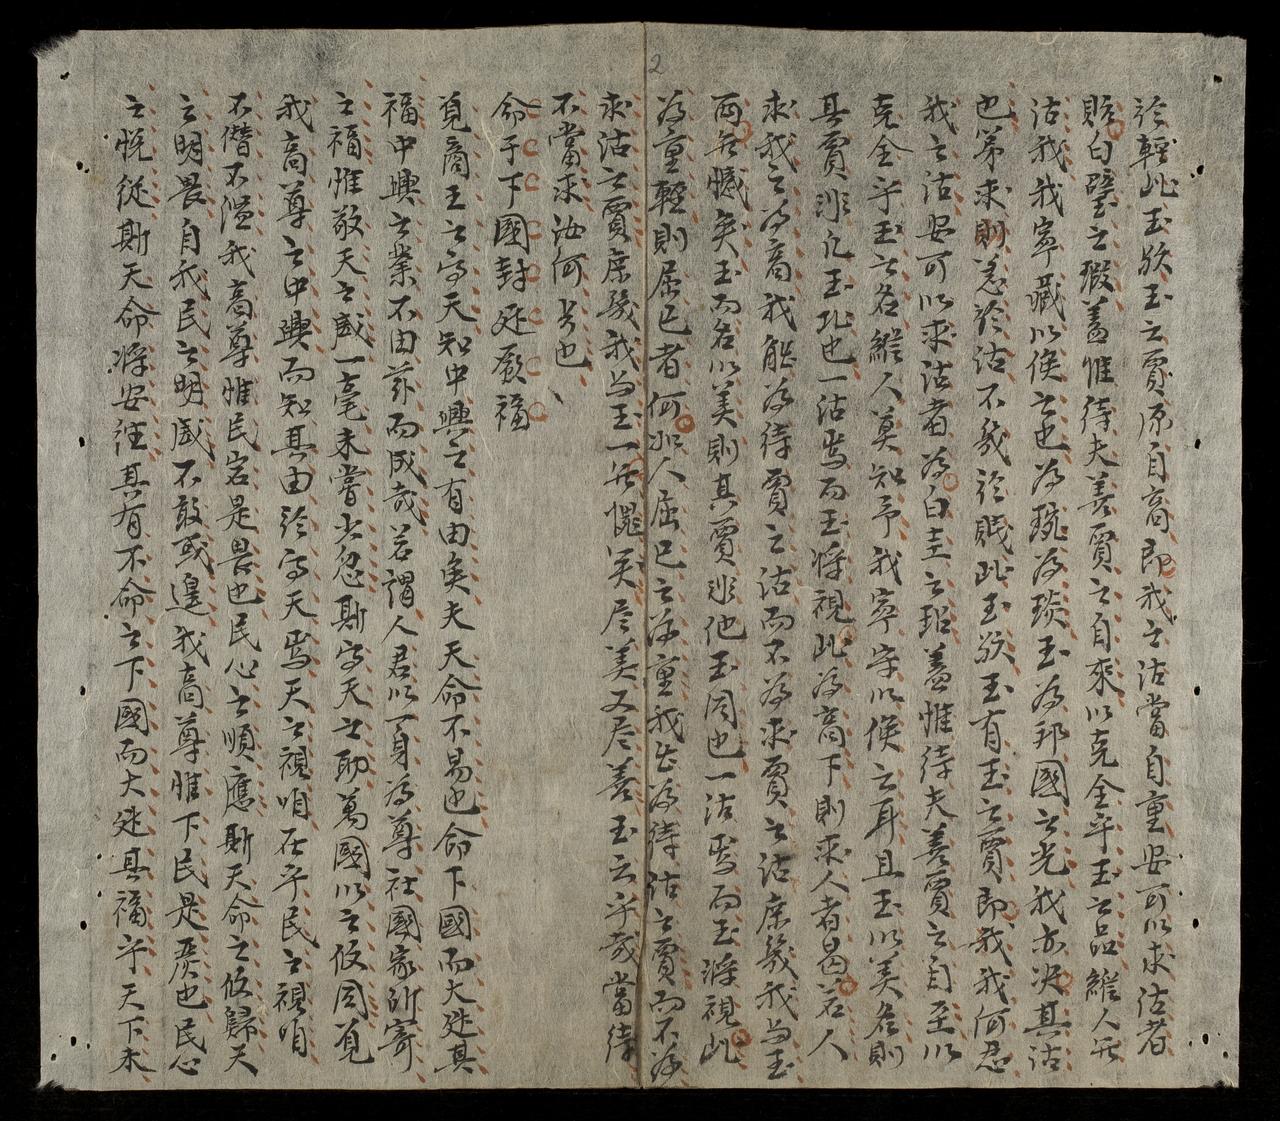 2
於輕此玉欤玉之賈原自高即我之沽當自重安可以求沽者
貶白璧之瑕盖惟待夫善賈之自來以克全乎玉之品縱人無
沽我我寧藏以俟之也為琬為琰玉為邦國之光我亦决其沽
也苐求則恙於沽不幾於賤此玉欤玉有玉之賈即我我何忍
我之沽安可以求沽者為白圭之玷盖惟待夫善賈之自至以
克全乎玉之名縱人莫知予我寧守以俟之耳且玉以美名則
其賈非凢玉比也一沽焉而玉将視此為高下則求人者曷若人
求我之為高我能為待賈之沽而不為求賈之沽庶幾我與玉
両無憾矣玉而名以美則其賈非他玉同也一沽焉而玉将視此
為重輕則屈己者何如人屈己之為重我能為待沽之賈而不為
求沽之賈庶幾我與玉一無愧矣尽美又尽善玉云乎哉當待
不當求汝何与也
命于下國封廷厥福
覓商王之享天知中興之有由矣夫天命不易也命下國而大廷其
福中興之業不由茲而成哉若謂人君以一身為尊社國家所寄
之福惟敬天之威一毫未嘗少忽斯享天之助萬國以之攸同覓
我高尊之中興而知其由於享天焉天之視听在乎民之視听
不僭不滥我高尊惟民岩是畏也民心之順應斯天命之攸歸天
之明畏自我民之明威不敢或遑我高尊惟下民是廣也民心
之悦從斯天命将安往其有不命之下國而大廷其福乎天下未